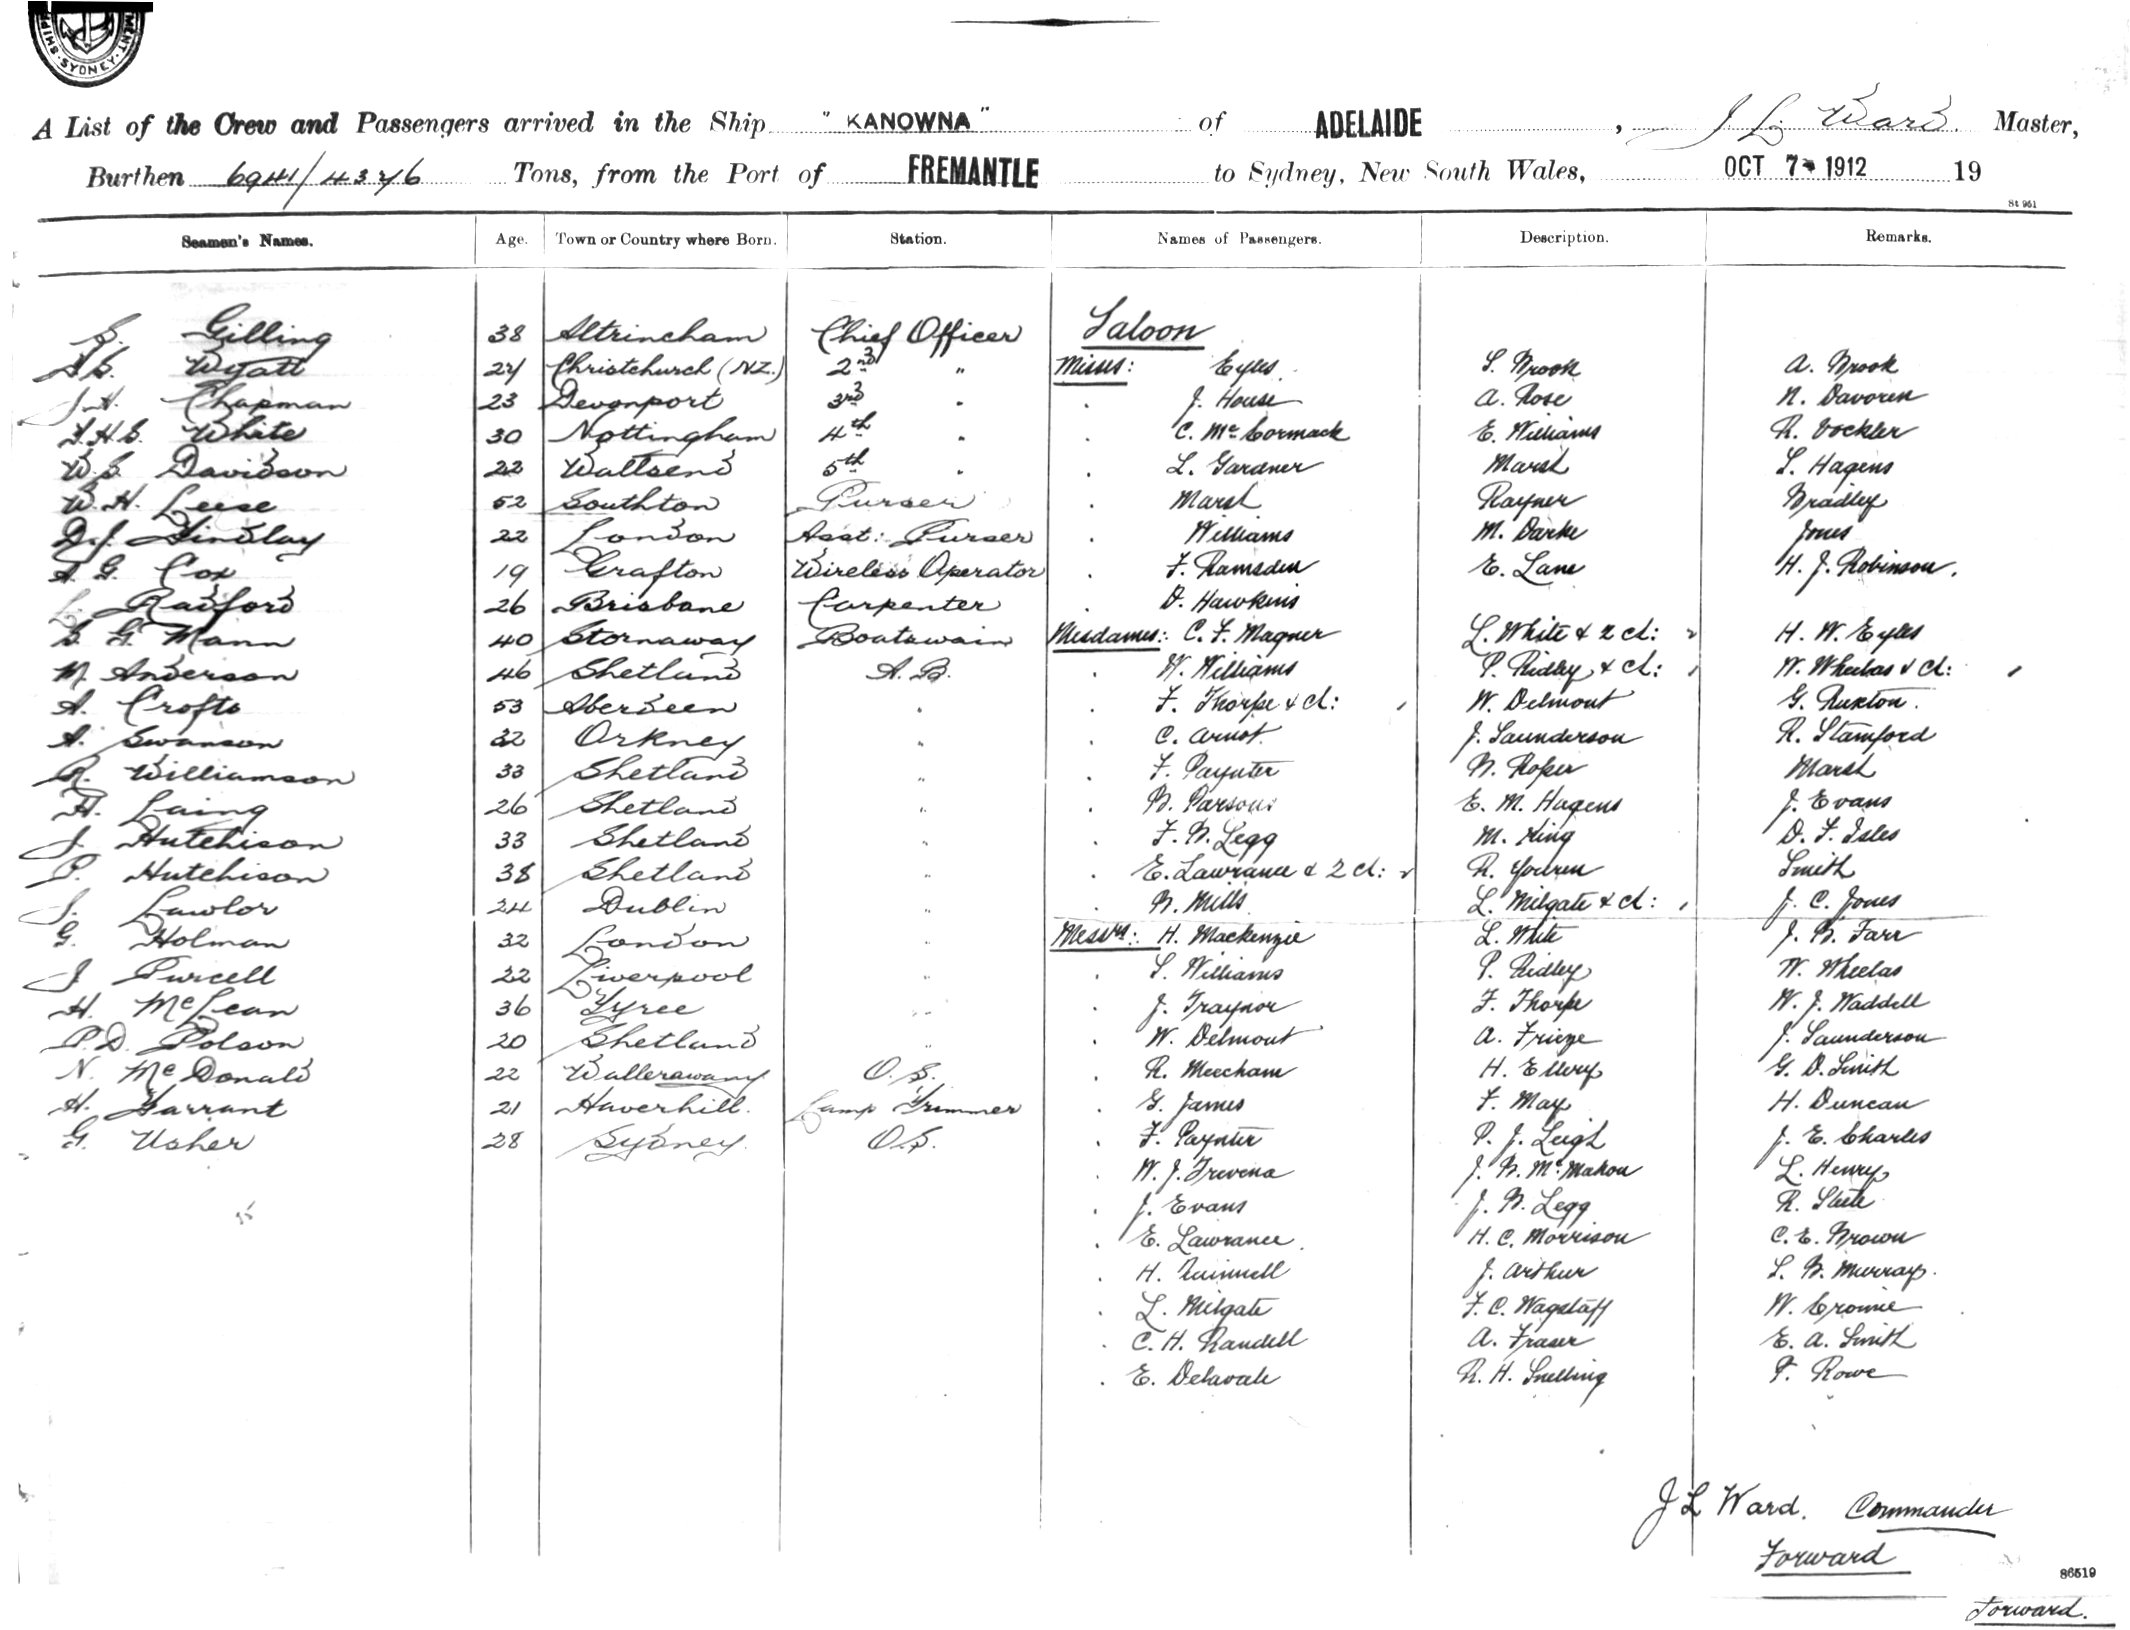 MENT. SYDNEY. SHIP
A List of the Crew and Passengers arrived in the Ship " KANOWNA " of ADELAIDE , J L Ward. Master,
Burthen 6941/4326 Tons, from the Port of FREMANTLE to Sydney, New South Wales, OCT 7 1912 19
St 961
Seamen's Names. Age. Town or Country where Born. Station. Names of Passengers. Description. Remarks.
Saloon
Gilling 38 Altrincham Chief Officer
Wyatt 24 Christchurch (NZ.) 2nd " Misses: Eyles. S. Brook A. Brook
J.H. Chapman 23 Devonport 3rd " J. House A. Rose N. Davoren
White 30 Nottingham 4th " C. McCormack E. Williams R. Vockler
W.S. Davidson 22 Wallsend 5th " L. Gardner Marsh S. Hagens
W.H. Leese 52 Southton Purser Marsh Rayner Bradley
D.J. Findlay 22 London Asst: Purser Williams M. Darke Jones
A. G. Cox 19 Grafton Wireless Operator F. Ramsden E. Lane H. J. Robinson.
Radford 26 Brisbane Carpenter D. Hawkins
G. Mann 40 Stornaway Boatswain Mesdames: C. F. Magner L. White & 2 ch: H. W. Eyles
M. Anderson 46 Shetland A.B. W. Williams P. Ridley & ch: W. Wheelas & ch:
A. Crofts 53 Aberdeen " F. Thorpe & ch: W. Delmont G. Ruxton.
A. Swanson 32 Orkney " C. Arnot. J. Saunderson R. Stamford
R. Williamson 33 Shetland " F. Paynter B. Roper Marsh
H. Laing 26 Shetland " B. Parsons E. M. Hagens J. Evans
J. Hutchison 33 Shetland " F. B. Legg M. King D. F. Isles
P. Hutchison 38 Shetland " E. Lawrance & 2 ch: R. Smith
J. Lawlor 24 Dublin " B. Mills L. Milgate & ch: J. C. Jones
G. Holman 32 London " Messrs: H. Mackenzie L. White J. B. Farr
J Purcell 22 Liverpool S. Williams P. Ridley W. Wheelas
H. McLean 36 Tyree " J. Traynor F. Thorpe W. J. Waddell
P.D. Polson 20 Shetland " W. Delmont A. Frieze J. Saunderson
N. McDonald 22 Wallerawang O.S. R. Meecham H. Ellery G. D. Smith
H. Farrant 21 Haverhill. Lamp Trimmer G. James F. May H. Duncan
G. Usher 28 Sydney. O.S. F. Paynter P. J. Leigh J. E. Charles
W. J. Trevena J. B. McMahon L. Henry
J. Evans J. B. Legg R. Steele
E. Lawrance. H. C. Morrison C. E. Brown
H. J. Arthur S. B. Murray.
L. Milgate F. C. Wagstaff W. Crowie
C. H. Randell A. Fraser E. A. Smith
E. Delavale R. H. Snelling P. Rowe
J L Ward. Commander
Forward
86519
Forward.